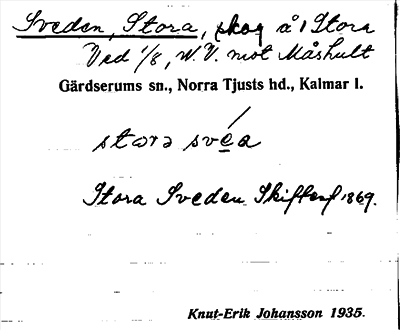 Sveden, Stora, skog å 1 Stora
Ved 1/8, N.V. mot Måshult
Gärdserums sn., Norra Tjusts hd., Kalmar l.
stora svea
Stora Sveden Skifteskf 1869.
Knut-Erik Johansson 1935.